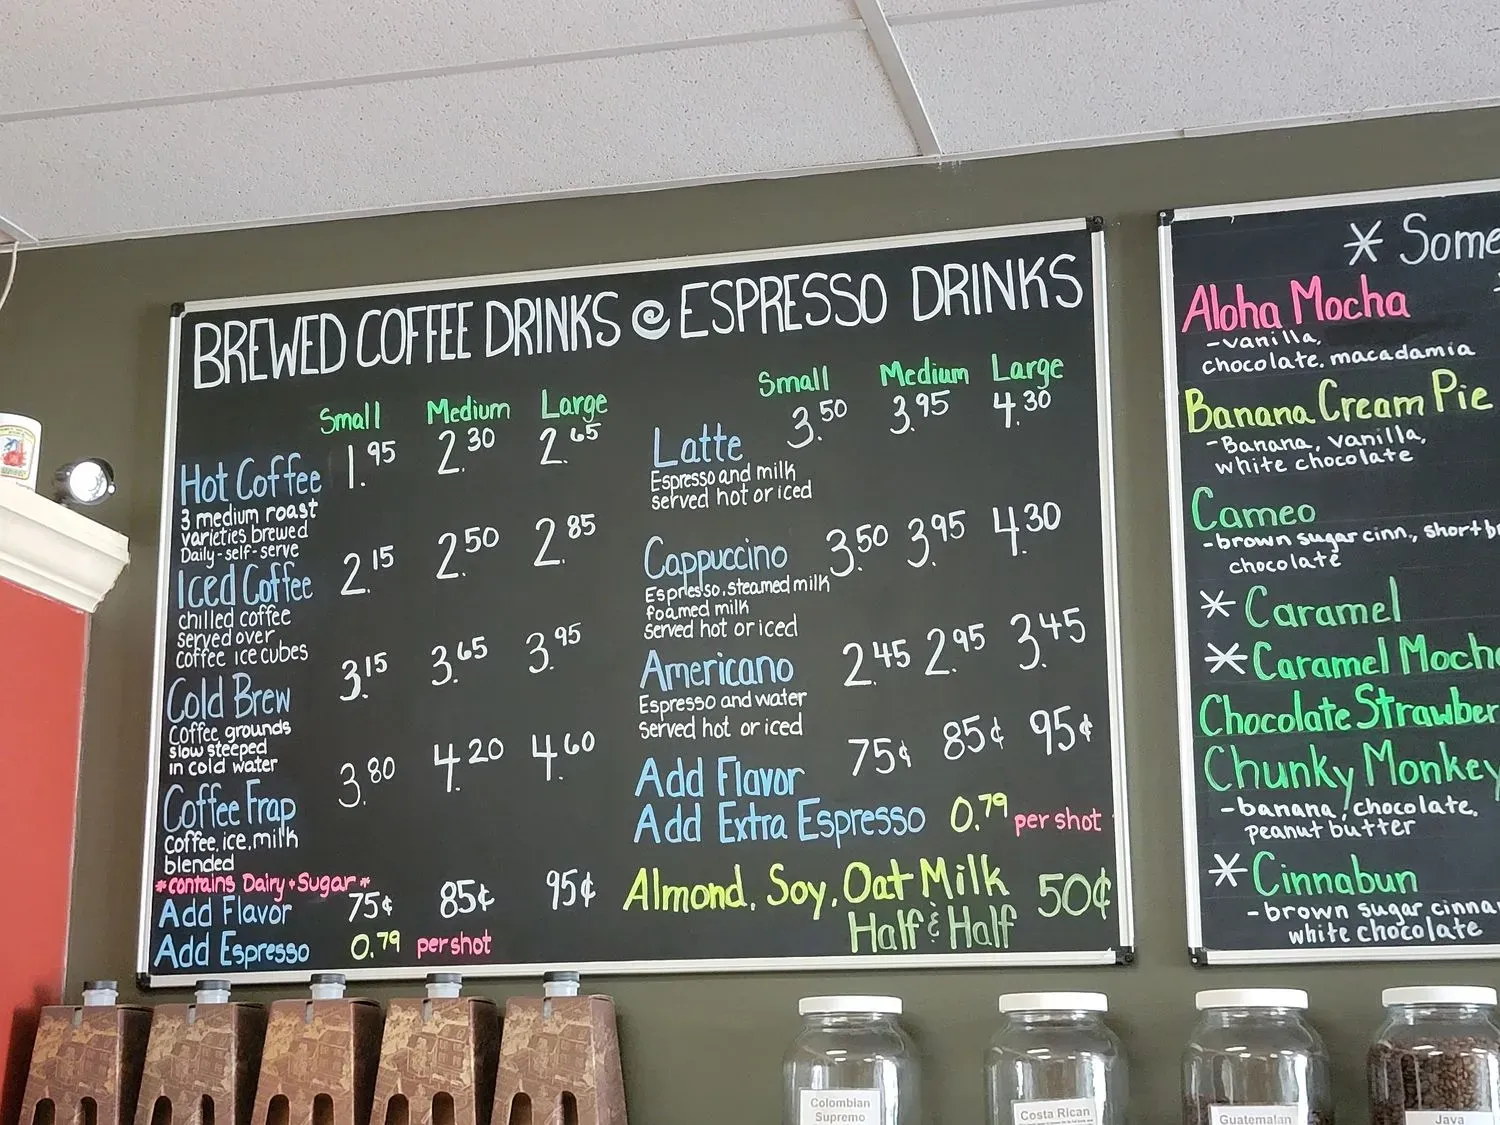 BREWED COFFEE DRINKS ESPRESSO DRINKS
Small Medium Large
Hot Coffee 1.95 2.30 2.65
3 medium roast
varieties brewed
Daily-self-serve
Iced Coffee 2.15 2.50 2.85
chilled coffee
served over
coffee ice cubes
Cold Brew 3.15 3.65 3.95
Coffee grounds
slow steeped
in cold water
Coffee Frap 3.80 4.20 4.60
coffee, ice, milk
blended
*contains Dairy + Sugar*
Add Flavor 75¢ 85¢ 95¢
Add Espresso 0.79 per shot
Small Medium Large
Latte 3.50 3.95 4.30
Espresso and milk
served hot or iced
Cappuccino 3.50 3.95 4.30
Espresso, steamed milk
foamed milk
Served hot or iced
Americano 2.45 2.95 3.45
Espresso and water
Served hot or iced
Add Flavor 75¢ 85¢ 95¢
Add Extra Espresso 0.79 per shot
Almond, Soy, Oat Milk
Half & Half 50¢
* Some
Aloha Mocha
-vanilla,
chocolate, macadamia
Banana Cream Pie
-Banana, vanilla,
white chocolate
Cameo
-brown sugar cinn., short
chocolate
* Caramel
* Caramel Moch
Chocolate Strawber
Chunky Monkey
-banana, chocolate,
peanut butter
* Cinnabun
-brown sugar cinna
white chocolate
Colombian
Supremo
Costa Rican
Guatemalan
Java